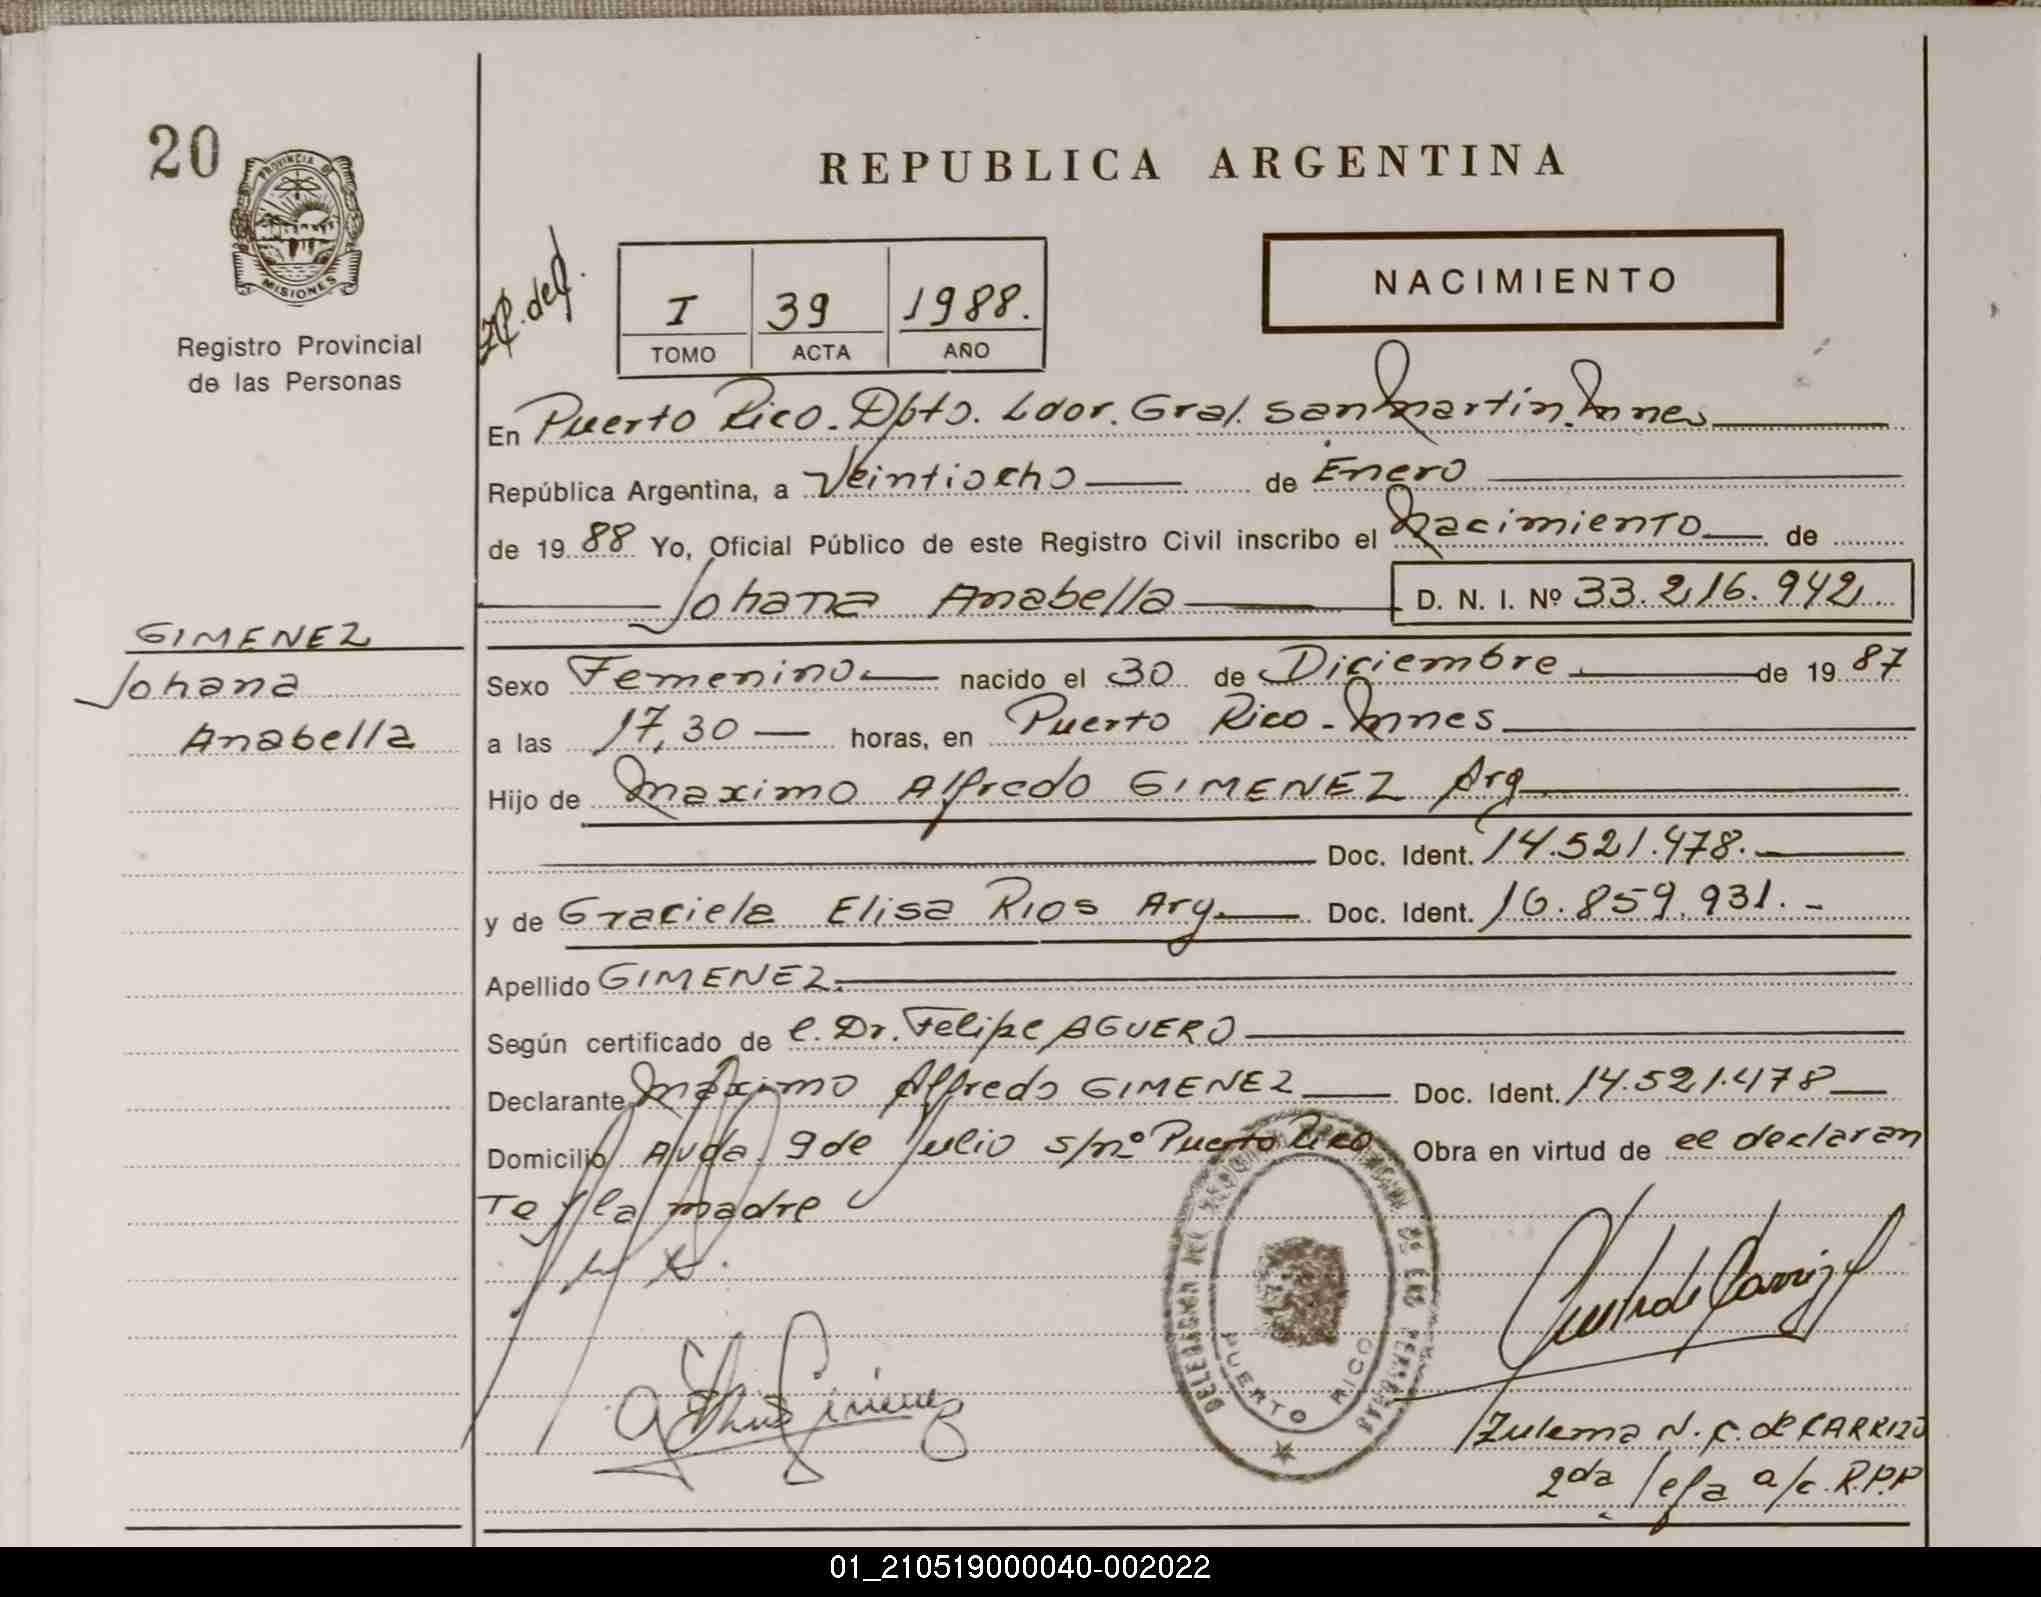 20
PROVINCIA DE
MISIONES
Registro Provincial
de las Personas
REPUBLICA ARGENTINA
I 39 1988.
TOMO ACTA AÑO
NACIMIENTO
En Puerto Rico. Dpto. Ldor. Gral. San Martin. Mnes
República Argentina, a Veintiocho de Enero
de 19 88 Yo, Oficial Público de este Registro Civil inscribo el Nacimiento de
Johana Anabella D. N. I. Nº 33.216.942
GIMENEZ
Johana
Anabella
Sexo Femenino nacido el 30 de Diciembre de 19 87
a las 17,30 horas, en Puerto Rico - Mnes
Hijo de Maximo Alfredo GIMENEZ Arg
Doc. Ident. 14.521.478.
y de Graciela Elisa RIOS Arg. Doc. Ident. 16.859.931. -
Apellido GIMENEZ.
Según certificado de l. Dr. Felipe AGUERO
Declarante Maximo Alfredo GIMENEZ Doc. Ident. 14.521.478
Domicilio Avda. 9 de Julio s/nº Puerto Rico Obra en virtud de el declaran
te y la madre
DELEGACION DEL REGISTRO DE LAS PERSONAS
PUERTO RICO
Gimenez
de Carrizo
Zulema N. C. de CARRIZO
2da Jefa a/c. R.P.P
01_210519000040-002022